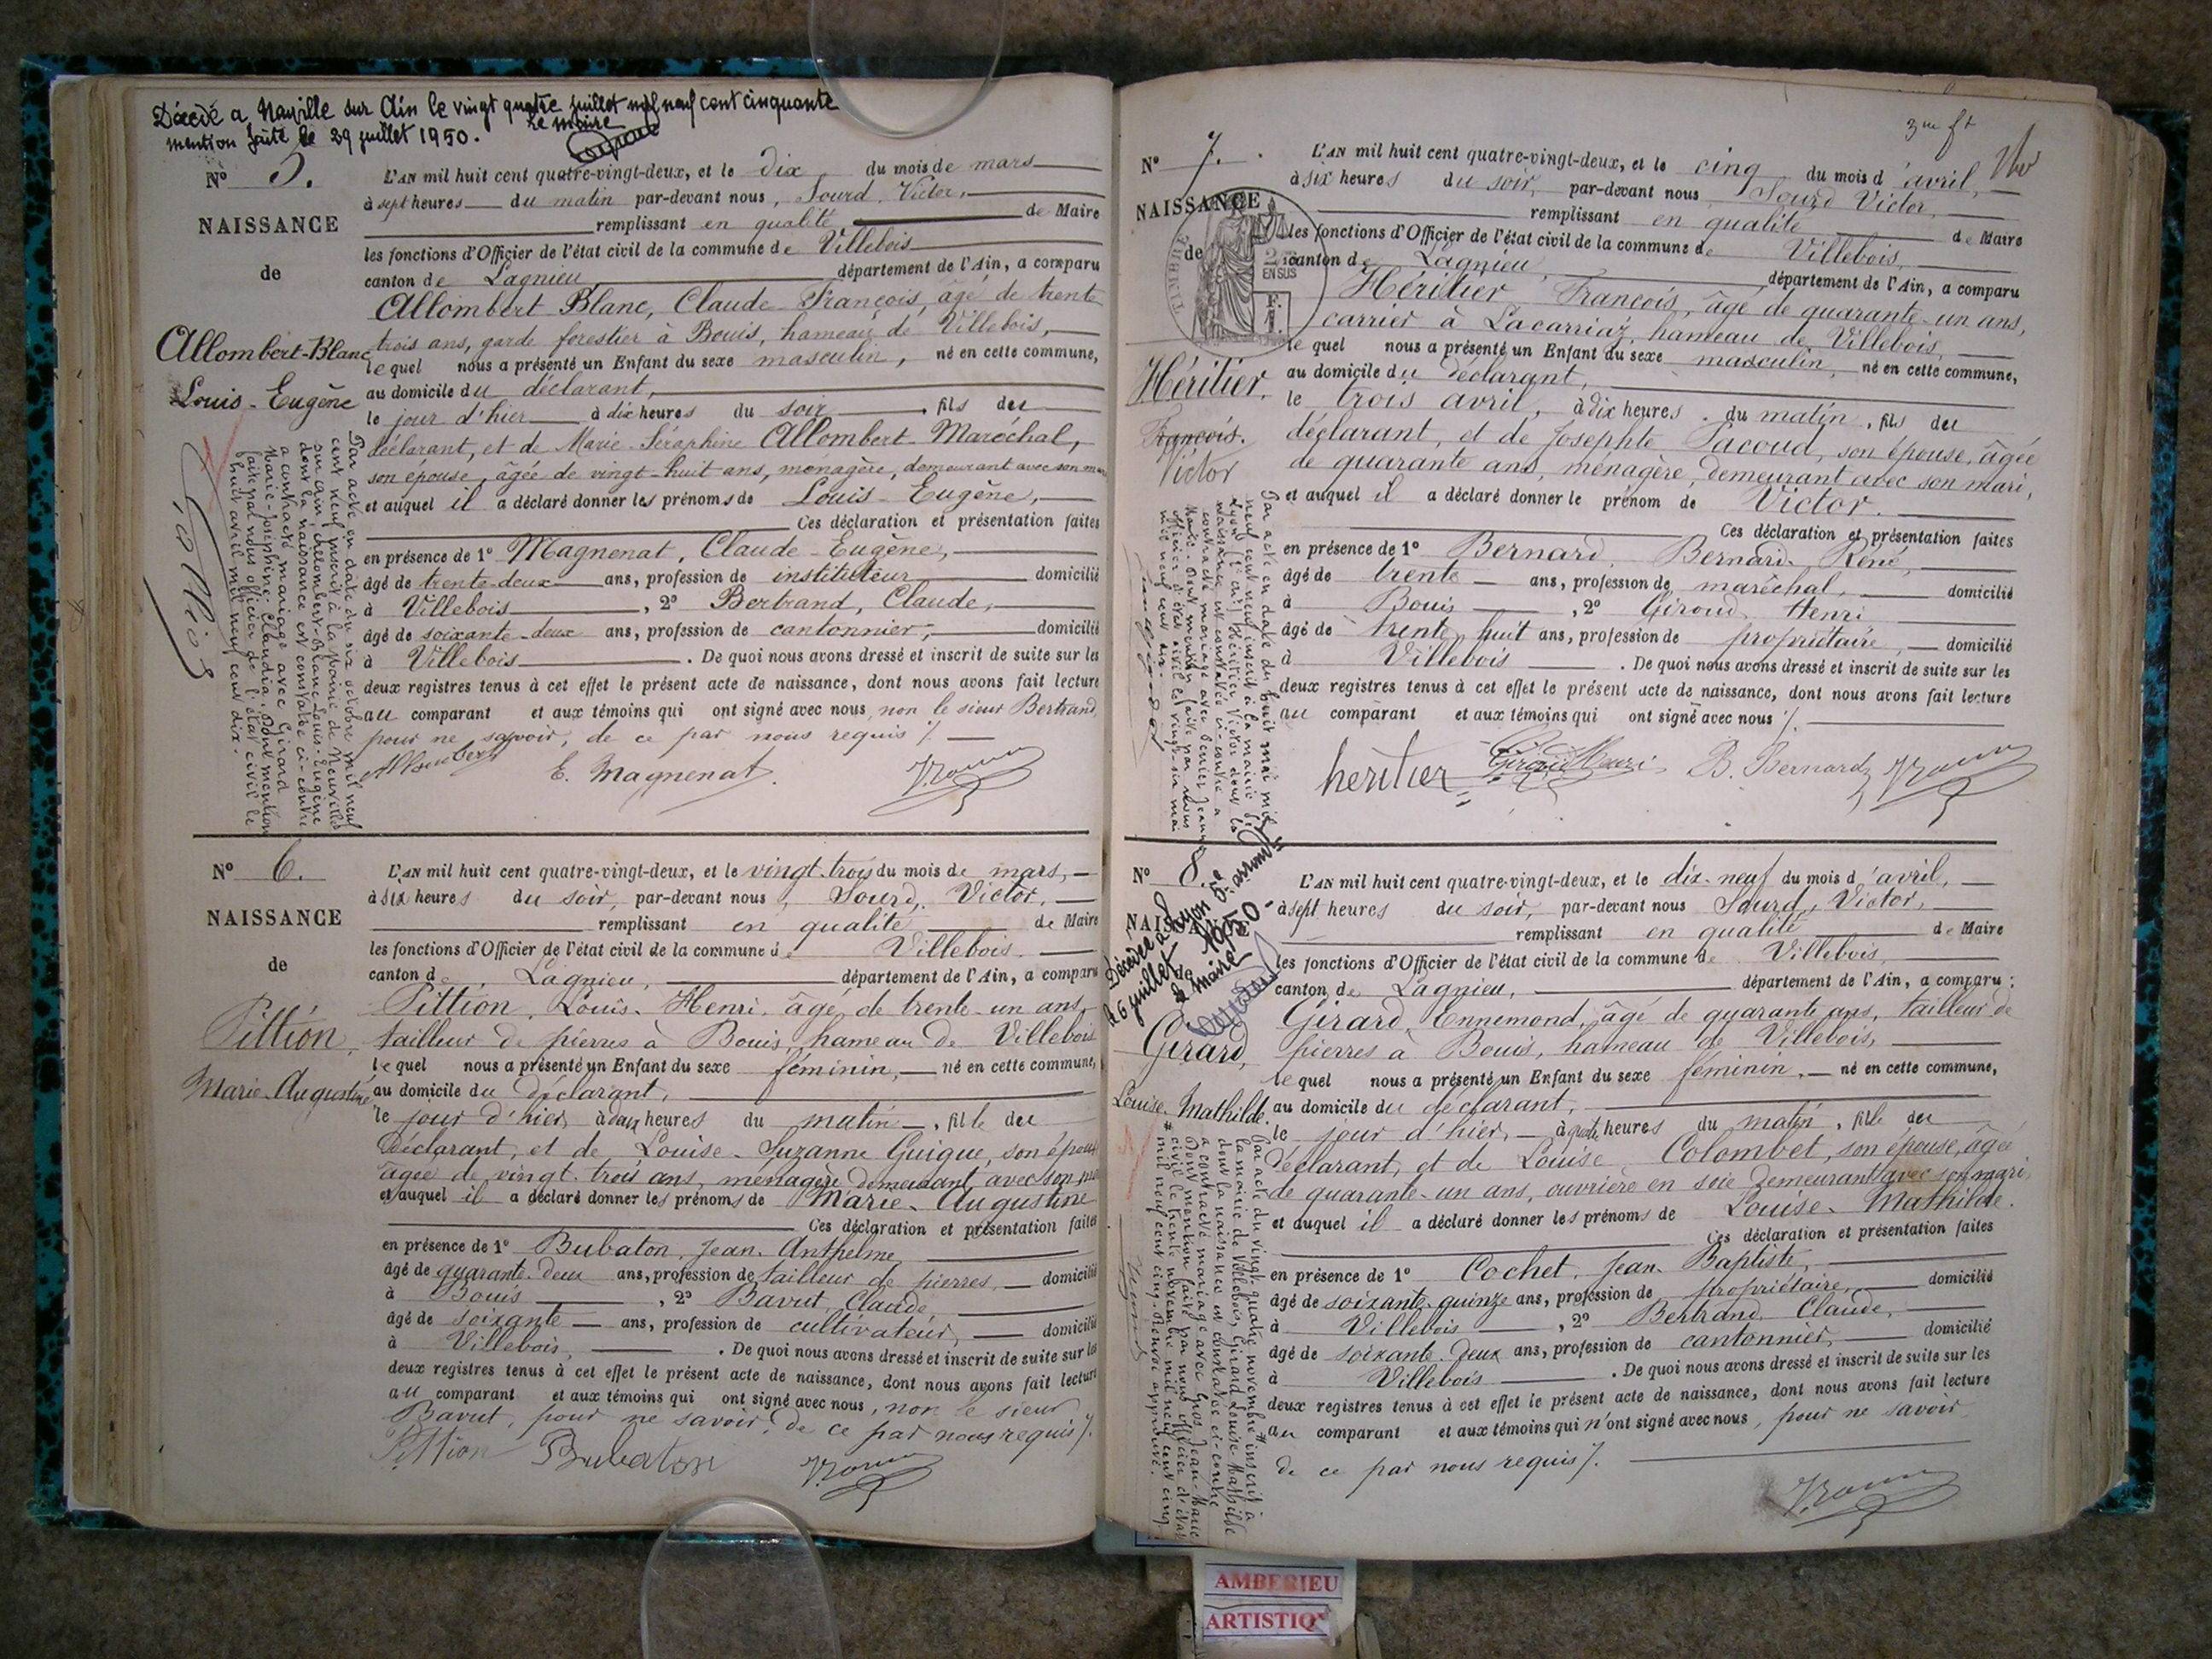 Décédé a Neuville sur Ain le vingt quatre juillet mil neuf cent cinquante
mention faite le 29 juillet 1950. Le maire
N° 5.
NAISSANCE
de
Allombert-Blanc
Louis-Eugène
Par acte en date du six octobre mil neuf
cent neuf inscrit à la mairie de Neuville
sur Ain, Allombert-Blanc Louis-Eugène
dont la naissance est constatée ci-contre
a contracté mariage avec Girard
Marie-Joséphine-Claudia. Dont mention
faite par nous officier de l'état civil le
huit avril mil neuf cent dix.
L'AN mil huit cent quatre-vingt-deux, et le dix du mois de mars
à sept heures du matin par-devant nous, Sourd, Victor,
remplissant en qualité de Maire
les fonctions d'Officier de l'état civil de la commune de Villebois
canton de Lagnieu département de l'Ain, a comparu
Allombert Blanc, Claude François, âgé de trente
trois ans, garde forestier à Bouis, hameau de Villebois,
lequel nous a présenté un Enfant du sexe masculin, né en cette commune,
au domicile du déclarant,
le jour d'hier à dix heures du soir, fils du
déclarant, et de Marie-Séraphine Allombert-Maréchal,
son épouse, âgée de vingt-huit ans, ménagère, demeurant avec son mari
et auquel il a déclaré donner les prénoms de Louis-Eugène,
Ces déclaration et présentation faites
en présence de 1° Magnenat, Claude-Eugène,
âgé de trente-deux ans, profession de instituteur domicilié
à Villebois, 2° Bertrand, Claude,
âgé de soixante-deux ans, profession de cantonnier, domicilié
à Villebois. De quoi nous avons dressé et inscrit de suite sur les
deux registres tenus à cet effet le présent acte de naissance, dont nous avons fait lecture
au comparant et aux témoins qui ont signé avec nous, non le sieur Bertrand,
pour ne savoir, de ce par nous requis /.
Allombert E. Magnenat
N° 6.
NAISSANCE
de
Pittion,
Marie-Augustine
L'AN mil huit cent quatre-vingt-deux, et le vingt-trois du mois de mars,
à six heures du soir, par-devant nous, Sourd, Victor,
remplissant en qualité de Maire
les fonctions d'Officier de l'état civil de la commune de Villebois.
canton de Lagnieu, département de l'Ain, a comparu
Pittion, Louis-Henri, âgé de trente-un ans,
tailleur de pierres à Bouis, hameau de Villebois
lequel nous a présenté un Enfant du sexe féminin, né en cette commune,
au domicile du déclarant,
le jour d'hier, à deux heures du matin, fille du
déclarant, et de Louise-Suzanne Guigue, son épouse
âgée de vingt-trois ans, ménagère demeurant avec son mari
et auquel il a déclaré donner les prénoms de Marie-Augustine
Ces déclaration et présentation faites
en présence de 1° Bubaton, Jean-Anthelme,
âgé de quarante-deux ans, profession de tailleur de pierres, domicilié
à Bouis, 2° Bavut, Claude,
âgé de soixante ans, profession de cultivateur, domicilié
à Villebois. De quoi nous avons dressé et inscrit de suite sur les
deux registres tenus à cet effet le présent acte de naissance, dont nous avons fait lecture
au comparant et aux témoins qui ont signé avec nous, non le sieur
Bavut, pour ne savoir, de ce par nous requis /.
Pittion Bubaton
3me ft
N° 7.
NAISSANCE
de
Héritier,
François.
Victor
Par acte en date du huit mai mil
neuf cent neuf inscrit à la mairie de
Lyon, Héritier Victor dont la
naissance est constatée ci-contre a
contracté mariage avec
L'AN mil huit cent quatre-vingt-deux, et le cinq du mois d'avril,
à six heures du soir, par-devant nous Sourd Victor,
remplissant en qualité de Maire
les fonctions d'Officier de l'état civil de la commune de Villebois,
canton de Lagnieu, département de l'Ain, a comparu
Héritier François, âgé de quarante-un ans,
carrier à Lacarriaz, hameau de Villebois,
lequel nous a présenté un Enfant du sexe masculin, né en cette commune,
au domicile du déclarant,
le trois avril, à dix heures du matin, fils du
déclarant, et de Josephte Pacoud, son épouse, âgée
de quarante ans, ménagère, demeurant avec son mari,
et auquel il a déclaré donner le prénom de Victor.
Ces déclaration et présentation faites
en présence de 1° Bernard, Bernard-René,
âgé de trente ans, profession de maréchal, domicilié
à Bouis, 2° Giroud, Henri,
âgé de trente huit ans, profession de propriétaire, domicilié
à Villebois. De quoi nous avons dressé et inscrit de suite sur les
deux registres tenus à cet effet le présent acte de naissance, dont nous avons fait lecture
au comparant et aux témoins qui ont signé avec nous /.
heritier Giroud Henri B. Bernard
N° 8.
NAISSANCE
de
Décédée à Lyon 5e arrondt
le 6 juillet 1950-
le maire
Girard,
Louise-Mathilde.
Par acte du vingt-quatre novembre # inscrit à
la mairie de Villebois, Girard Louise-Mathilde
dont la naissance est constatée ci-contre
a contracté mariage avec Gros Jean-Marie
Dont mention faite par nous officier d'état
civil le trente novembre mil neuf cent cinq
# mil neuf cent cinq. Renvoi approuvé.
L'AN mil huit cent quatre-vingt-deux, et le dix-neuf du mois d'avril,
à sept heures du soir, par-devant nous Sourd, Victor,
remplissant en qualité de Maire
les fonctions d'Officier de l'état civil de la commune de Villebois,
canton de Lagnieu, département de l'Ain, a comparu :
Girard, Ennemond, âgé de quarante ans, tailleur de
pierres à Bouis, hameau de Villebois,
lequel nous a présenté un Enfant du sexe féminin, né en cette commune,
au domicile du déclarant,
le jour d'hier, à quatre heures du matin, fille du
déclarant, et de Louise Colombet, son épouse, âgée
de quarante-un ans, ouvrière en soie demeurant avec son mari,
et auquel il a déclaré donner les prénoms de Louise-Mathilde.
Ces déclaration et présentation faites
en présence de 1° Cochet, Jean-Baptiste,
âgé de soixante-quinze ans, profession de propriétaire, domicilié
à Villebois, 2° Bertrand, Claude,
âgé de soixante-deux ans, profession de cantonnier, domicilié
à Villebois. De quoi nous avons dressé et inscrit de suite sur les
deux registres tenus à cet effet le présent acte de naissance, dont nous avons fait lecture
au comparant et aux témoins qui n'ont signé avec nous, pour ne savoir
de ce par nous requis /.
AMBERIEU
ARTISTIQ